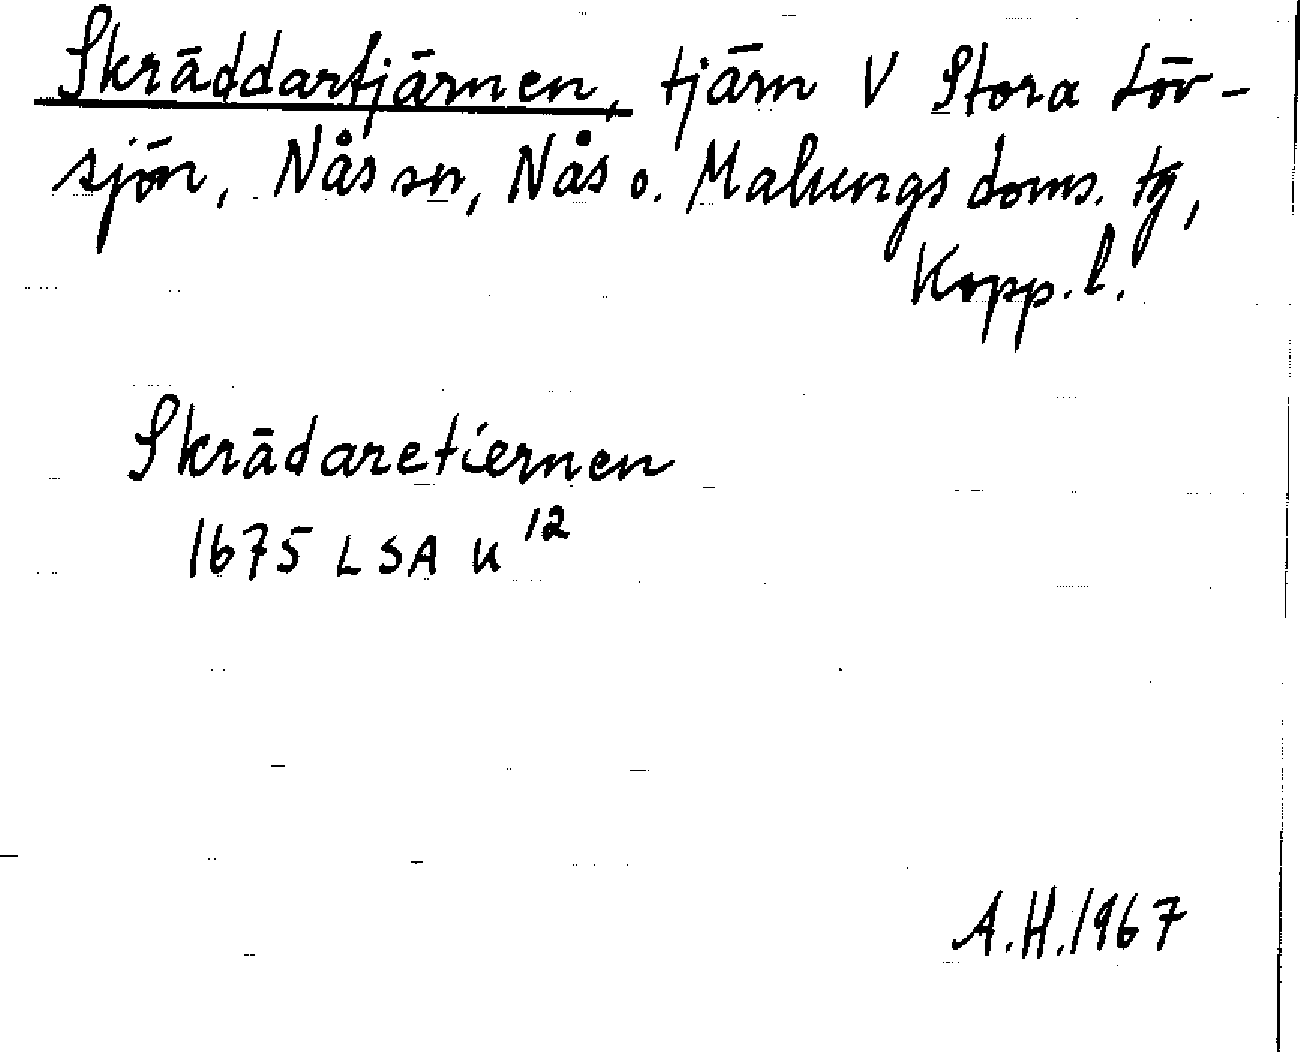 Skräddartjärnen, tjärn V Stora Löv-
sjön, Nås sn, Nås o. Malungs doms. tg,
Kopp. l.
Skrädaretiernen
1675 LSA U 12
A.H. 1967